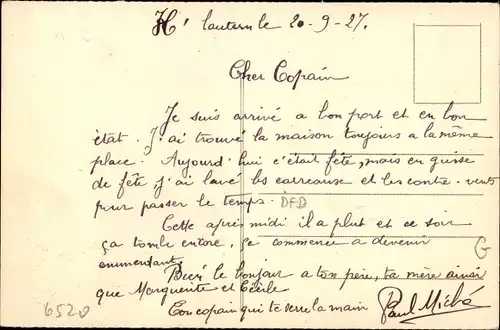 Hᵗ lautern le 20-9-27.
Cher Copain
Je suis arrivé a bon port et en bon
état. J'ai trouvé la maison toujours a la même
place. Aujourd'hui c'était fête, mais en guise
de fête j'ai lavé les carreaux et les contre-vents
pour passer le temps. DFD
Cette après midi il a plut et ce soir
ça tombe encore, ça commence a devenir
emmerdant.
Bien le bonjour a ton père, ta mère ainsi
que Marguerite et Cécile
Ton copain qui te serre la main Paul
6520
G